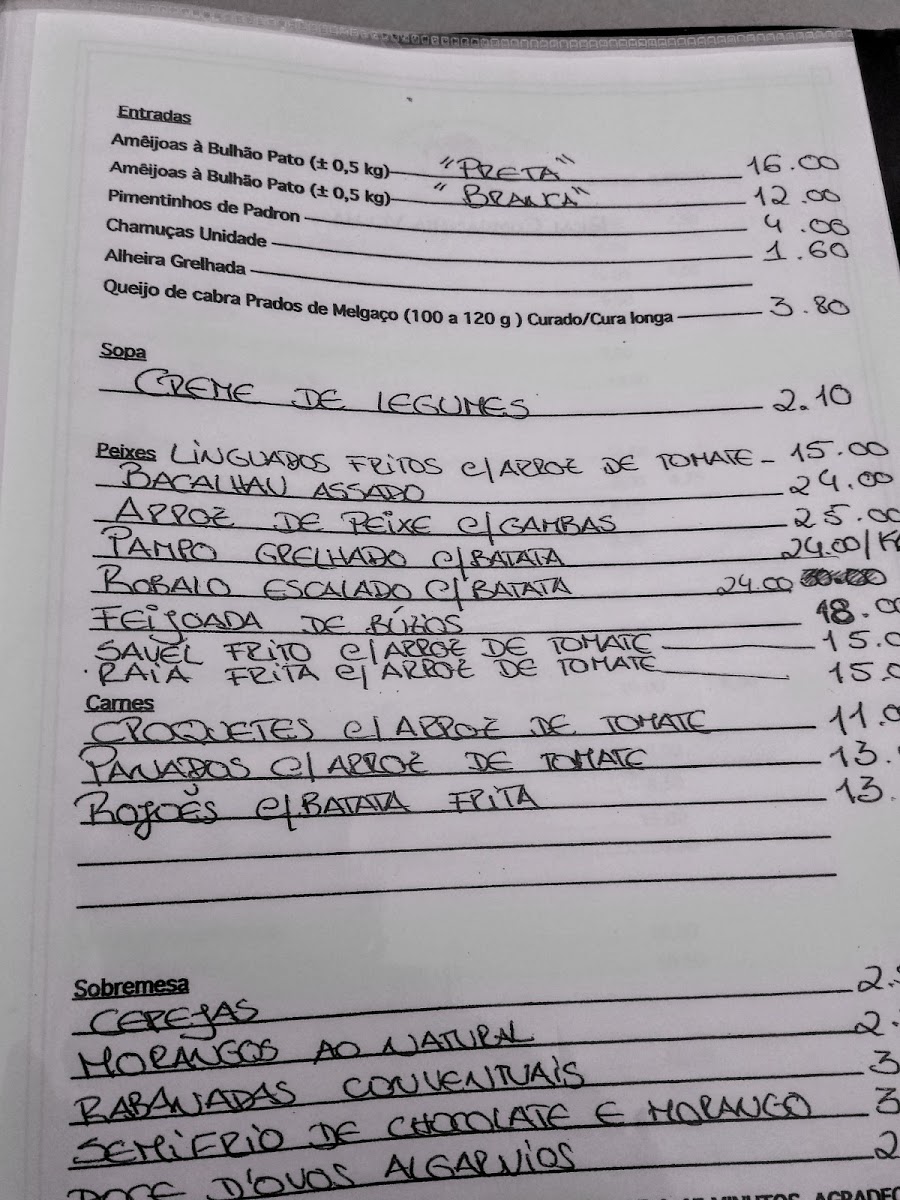 Entradas
Amêijoas à Bulhão Pato (± 0,5 kg) "PRETA" 16.00
Amêijoas à Bulhão Pato (± 0,5 kg) "BRANCA" 12.00
Pimentinhos de Padron 4.00
Chamuças Unidade 1.60
Alheira Grelhada
Queijo de cabra Prados de Melgaço (100 a 120 g ) Curado/Cura longa 3.80
Sopa
CREME DE LEGUMES 2.10
Peixes LINGUADOS FRITOS C/ARROZ DE TOMATE - 15.00
BACALHAU ASSADO 24.00
ARROZ DE PEIXE C/GAMBAS 25.00
PAMPO GRELHADO C/BATATA 24.00/K
ROBALO ESCALADO C/BATATA 24.00
FEIJOADA DE BÚZIOS 18.0
SAVEL FRITO C/ARROZ DE TOMATE 15.0
RAIA FRITA C/ARROZ DE TOMATE 15.0
Carnes
CROQUETES C/ARROZ DE TOMATE 11.0
PANADOS C/ARROZ DE TOMATE 13.
ROJOES C/BATATA FRITA 13.
Sobremesa
CEREJAS 2.
MORANGOS AO NATURAL 2.
RABANADAS CONVENTUAIS 3
SEMIFRIO DE CHOCOLATE E MORANGO 3
DOCE D'OVOS ALGARVIOS 2
MINUTOS, AGRADEC